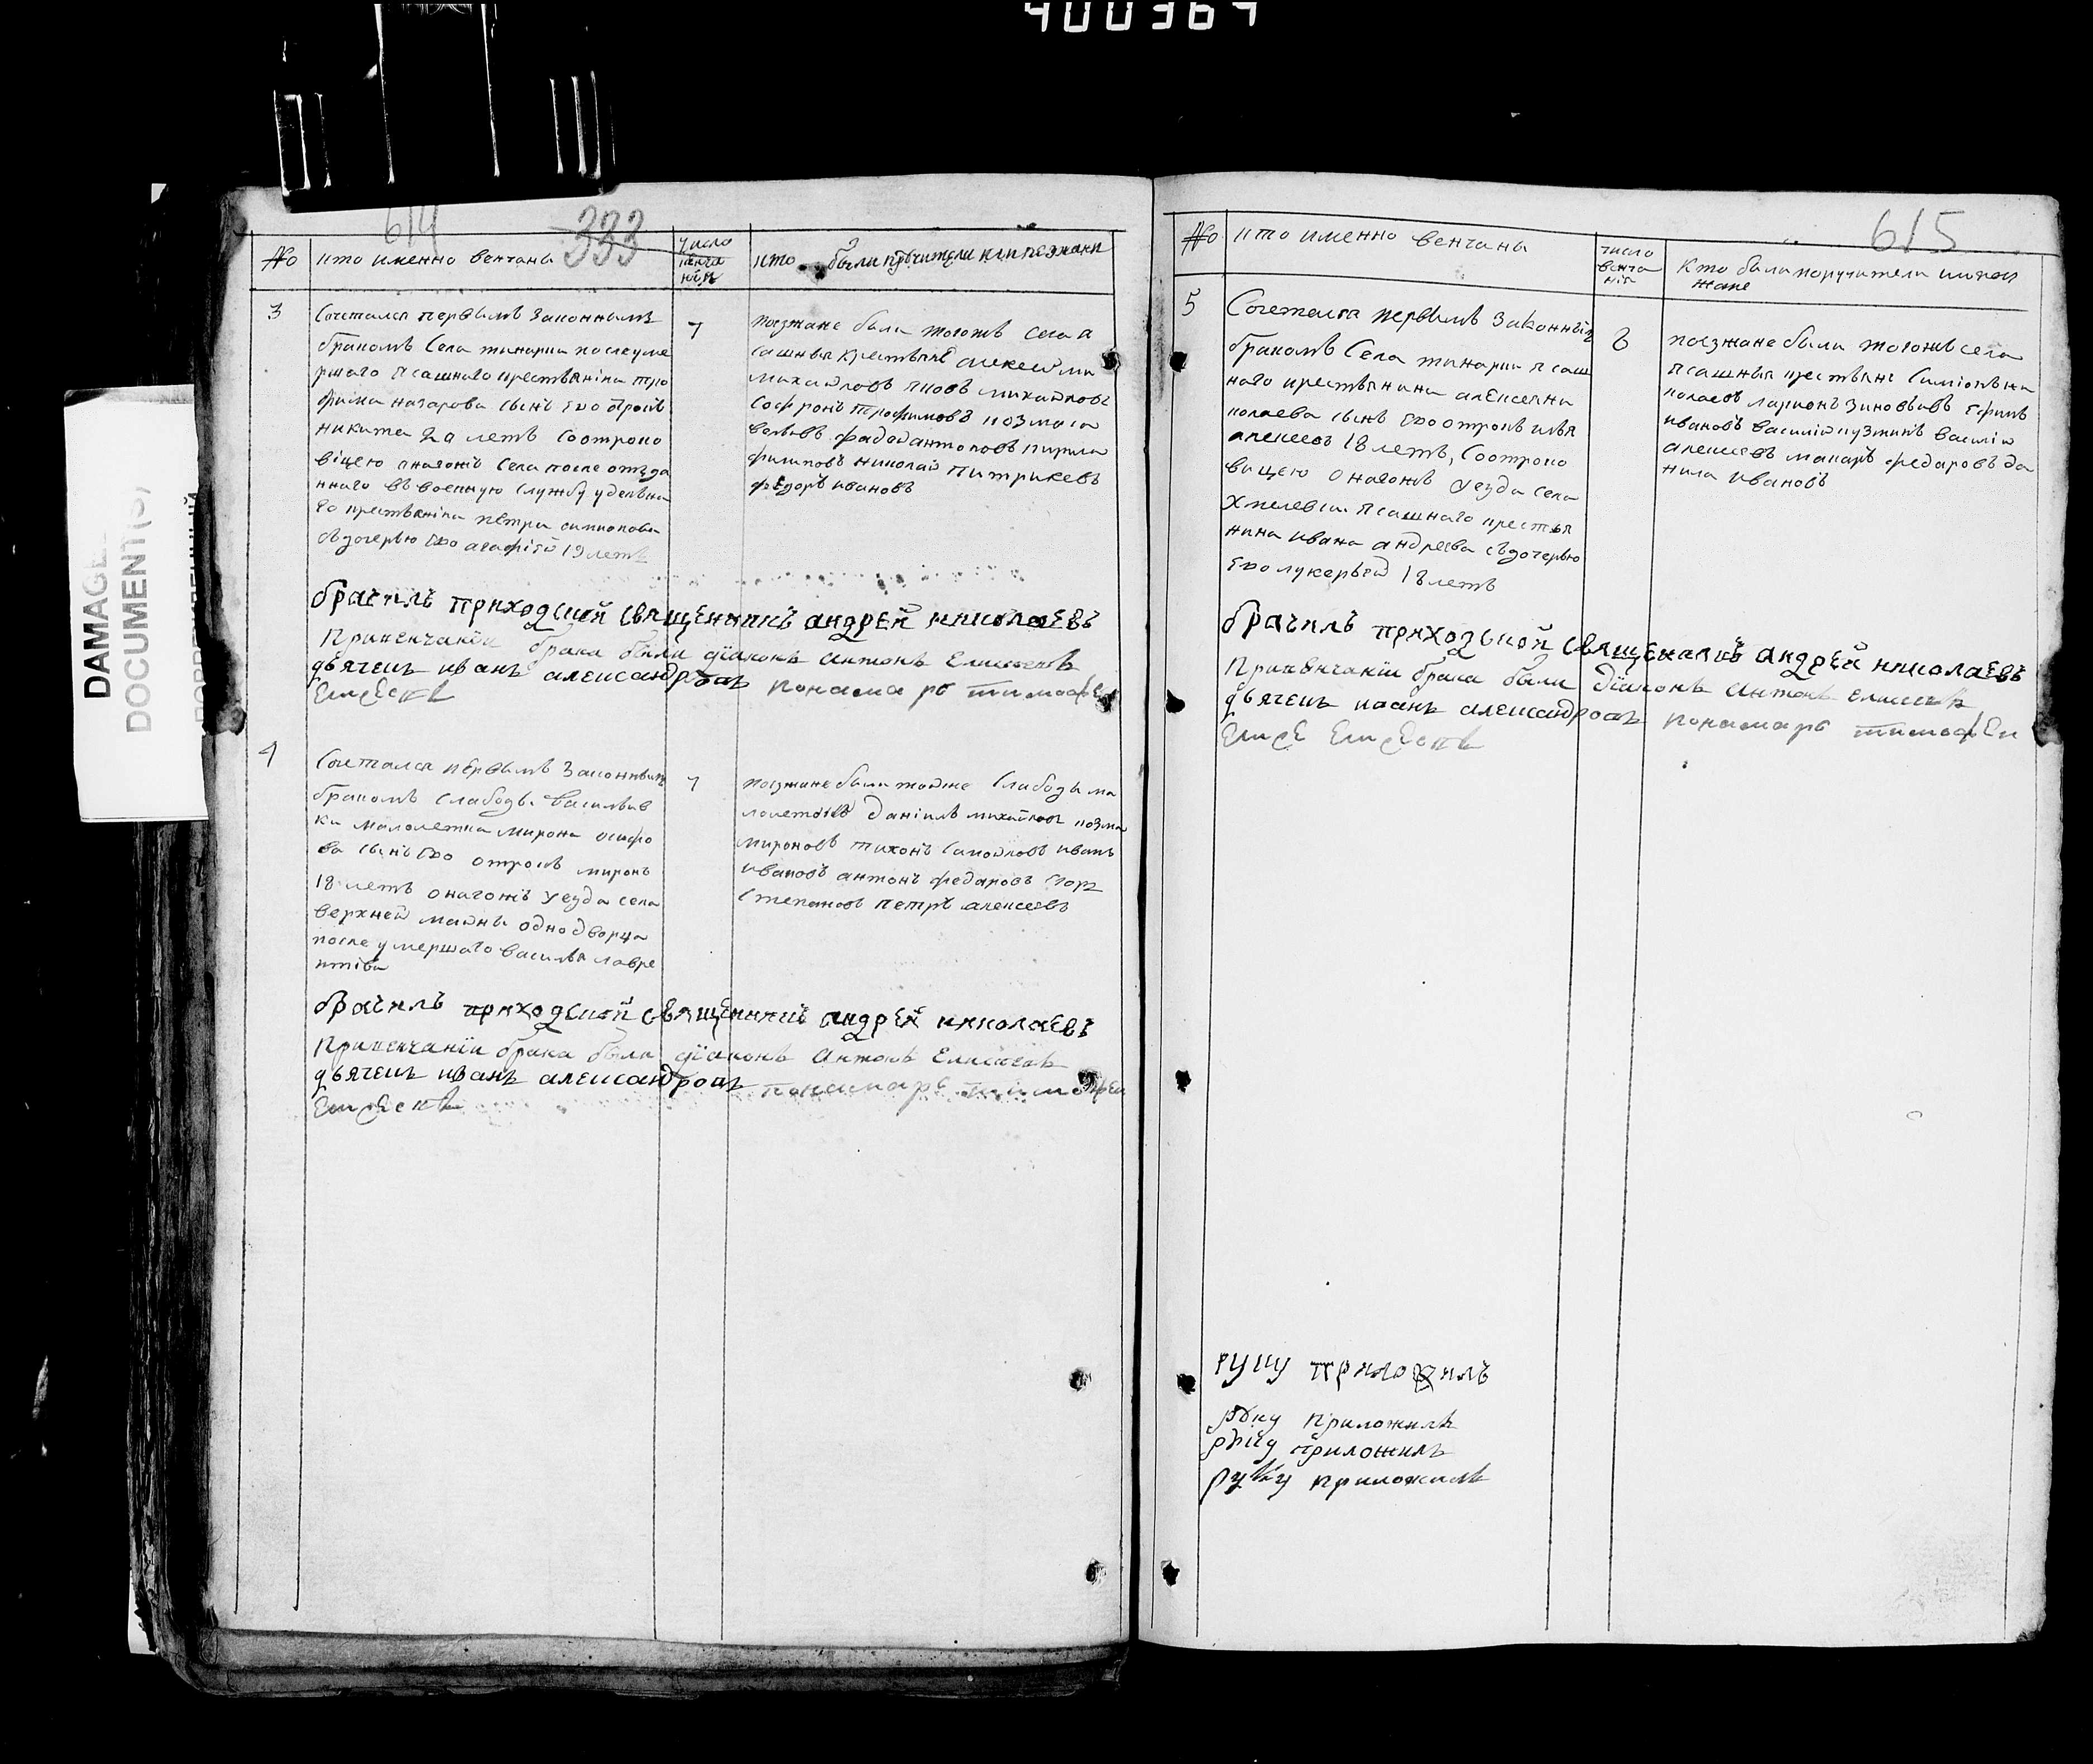 400364
DAMAGE
DOCUMENT(S)
614 333
№ кто именно венчаны
число венча нія
кто были поручители или поезжани
3
Сочетался первымъ законнымъ
бракомъ Села тинарки после уме
ршаго ясашнаго крестьянина тро
фима назарова сынъ его отрокъ
никита 20 летъ Соотроко
вицею онагожъ Села после отзда
ннаго въ военную службу удельна
го крестьянина петра симионова
съ дочерью его агафіей 19 летъ
7
поезжане были тогожъ села я
сашныя крестьяне алексей ми
михайловъ яковъ михайловъ
Софронъ трофимовъ козма са
фадей антоновъ кирила
филиповъ николай питрикевъ
федоръ ивановъ
брачилъ приходской священникъ андрей николаевъ
При венчаніи брака были діаконъ Антонъ Елисеевъ
дьячекъ иванъ александровъ понамарь тимофей
4
Сочетался первымъ законнымъ
бракомъ слабоды васильев
ки малолетка мирона осифо
ва сынъ его отрокъ миронъ
18 летъ онагожъ уезда села
верхней майны однодворца
после умершаго василья лавре
нтіва
7
поезжане были тойже слабоды ма
лолетковъ данилъ михайловъ козма
мироновъ тихонъ самойловъ иванъ
ивановъ антонъ федаровъ егоръ
степановъ петръ алексеевъ
брачилъ приходской священникъ андрей николаевъ
При венчаніи брака были діаконъ Антонъ Елисеевъ
дьячекъ иванъ александровъ понамарь тимофей
615
№ кто именно венчаны
число венча нія
Кто были поручители или поез
жане
5
Сочетался первымъ законнымъ
бракомъ Села тинарки ясаш
наго крестьянина алексея ни
колаева сынъ его отрокъ илья
алексеевъ 18 летъ, Соотроко
вицею онагожъ уезда села
Хмелевки ясашнаго крестья
нина ивана андреева съ дочерью
его лукерьей 18 летъ
8
поезжане были тогожъ села
ясашныя крестьяне Симіонъ ни
колаевъ ларионъ зиновьевъ ефимъ
ивановъ василій кузминъ василій
алексеевъ макаръ федаровъ да
нила ивановъ
брачилъ приходской священникъ андрей николаевъ
При венчаніи брака были діаконъ Антонъ Елисеевъ
дьячекъ иванъ александровъ понамарь тимофей
руку приложилъ
руку приложилъ
руку приложилъ
руку приложилъ